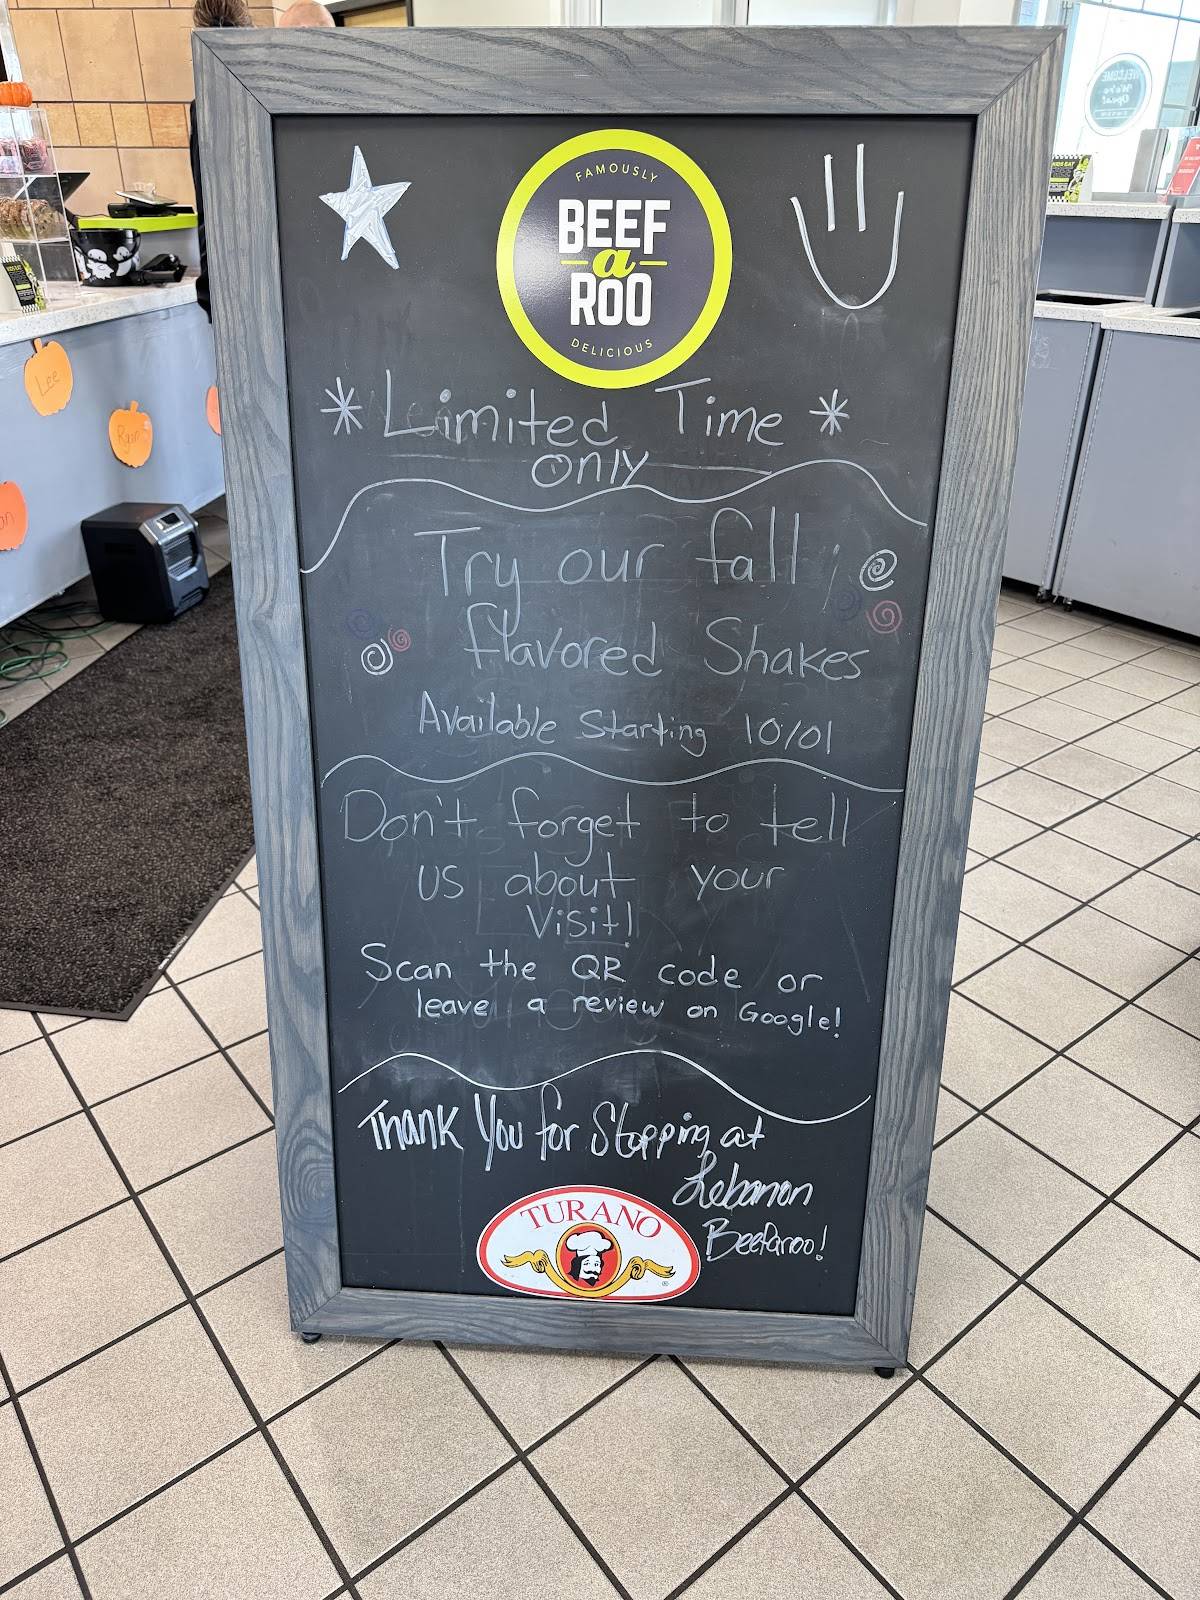 FAMOUSLY
BEEF
a
ROO
DELICIOUS
* Limited Time *
only
Try our fall
flavored Shakes
Available Starting 10/01
Don't forget to tell
us about your
Visit!
Scan the QR code or
leave a review on Google!
Thank You for Stopping at
Lebanon
Beefaroo!
TURANO
®
Lee
Ryan
WELCOME
We're
Open!
KIDS EAT